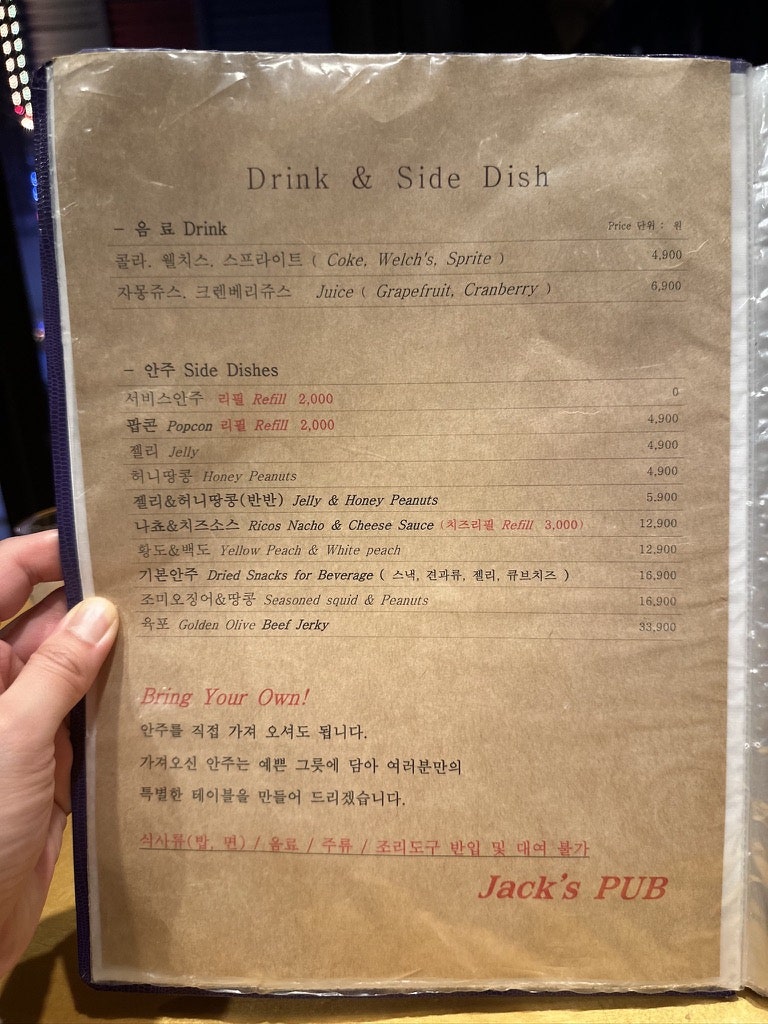 Drink & Side Dish
- 음 료 Drink Price 단위 : 원
콜라. 웰치스. 스프라이트 ( Coke, Welch's, Sprite ) 4,900
자몽쥬스. 크렌베리쥬스 Juice ( Grapefruit, Cranberry ) 6,900
- 안주 Side Dishes
서비스안주 리필 Refill 2,000 0
팝콘 Popcon 리필 Refill 2,000 4,900
젤리 Jelly 4,900
허니땅콩 Honey Peanuts 4,900
젤리&허니땅콩(반반) Jelly & Honey Peanuts 5,900
나쵸&치즈소스 Ricos Nacho & Cheese Sauce (치즈리필 Refill 3,000) 12,900
황도&백도 Yellow Peach & White peach 12,900
기본안주 Dried Snacks for Beverage ( 스낵, 견과류, 젤리, 큐브치즈 ) 16,900
조미오징어&땅콩 Seasoned squid & Peanuts 16,900
육포 Golden Olive Beef Jerky 33,900
Bring Your Own!
안주를 직접 가져 오셔도 됩니다.
가져오신 안주는 예쁜 그릇에 담아 여러분만의
특별한 테이블을 만들어 드리겠습니다.
식사류(밥, 면) / 음료 / 주류 / 조리도구 반입 및 대여 불가
Jack's PUB